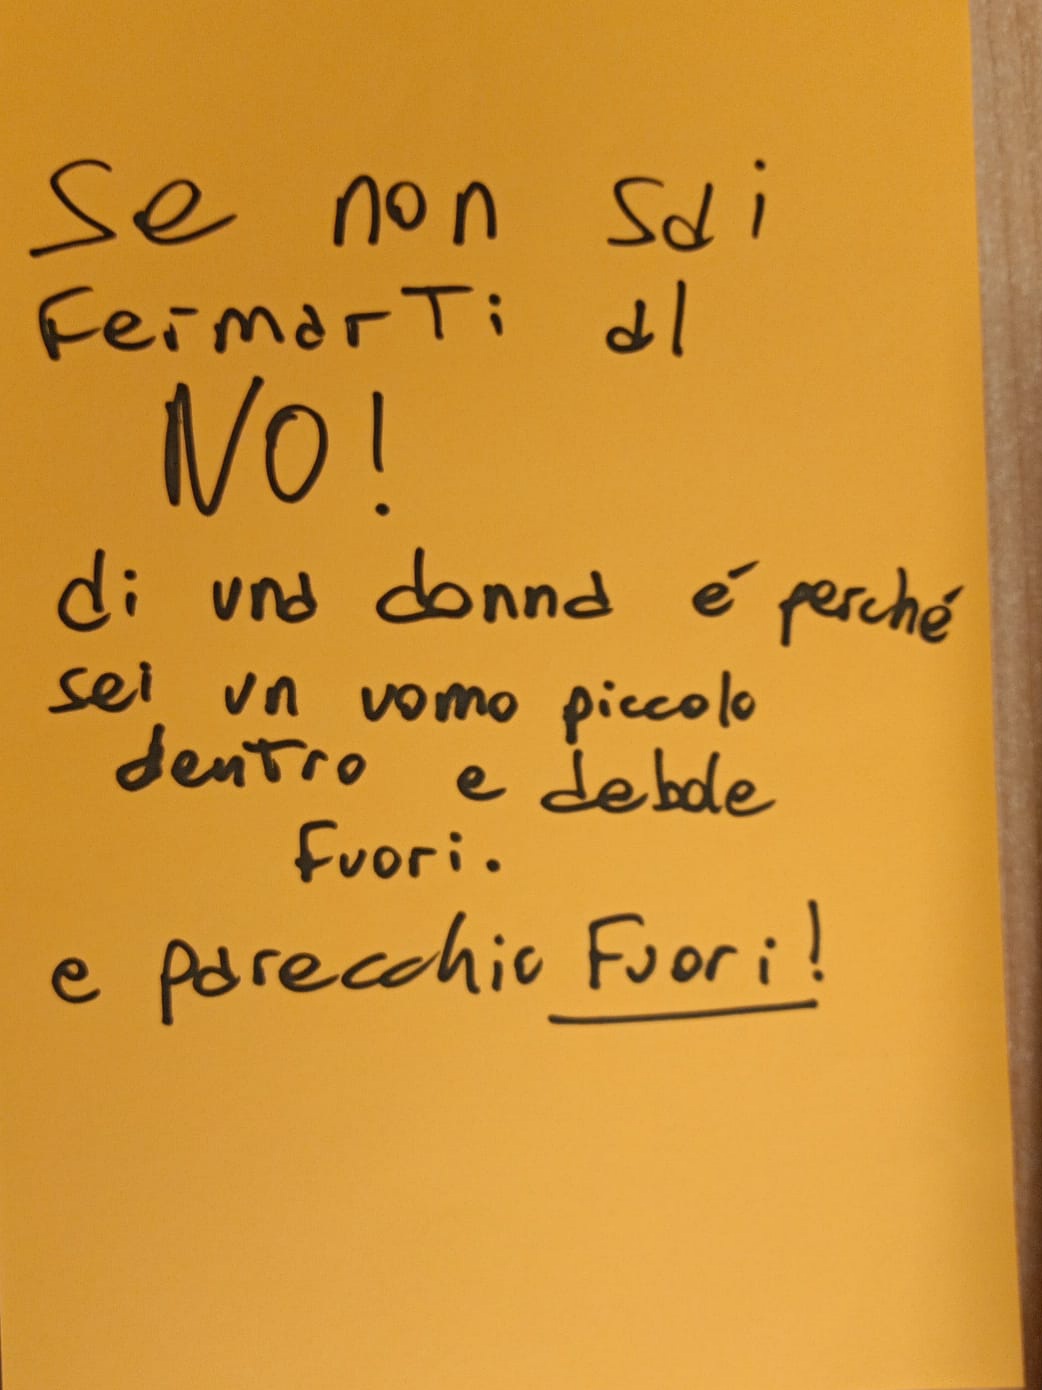 Se non sai
Fermarti al
NO!
di una donna é perché
sei un uomo piccolo
dentro e debole
Fuori.
e parecchio Fuori!